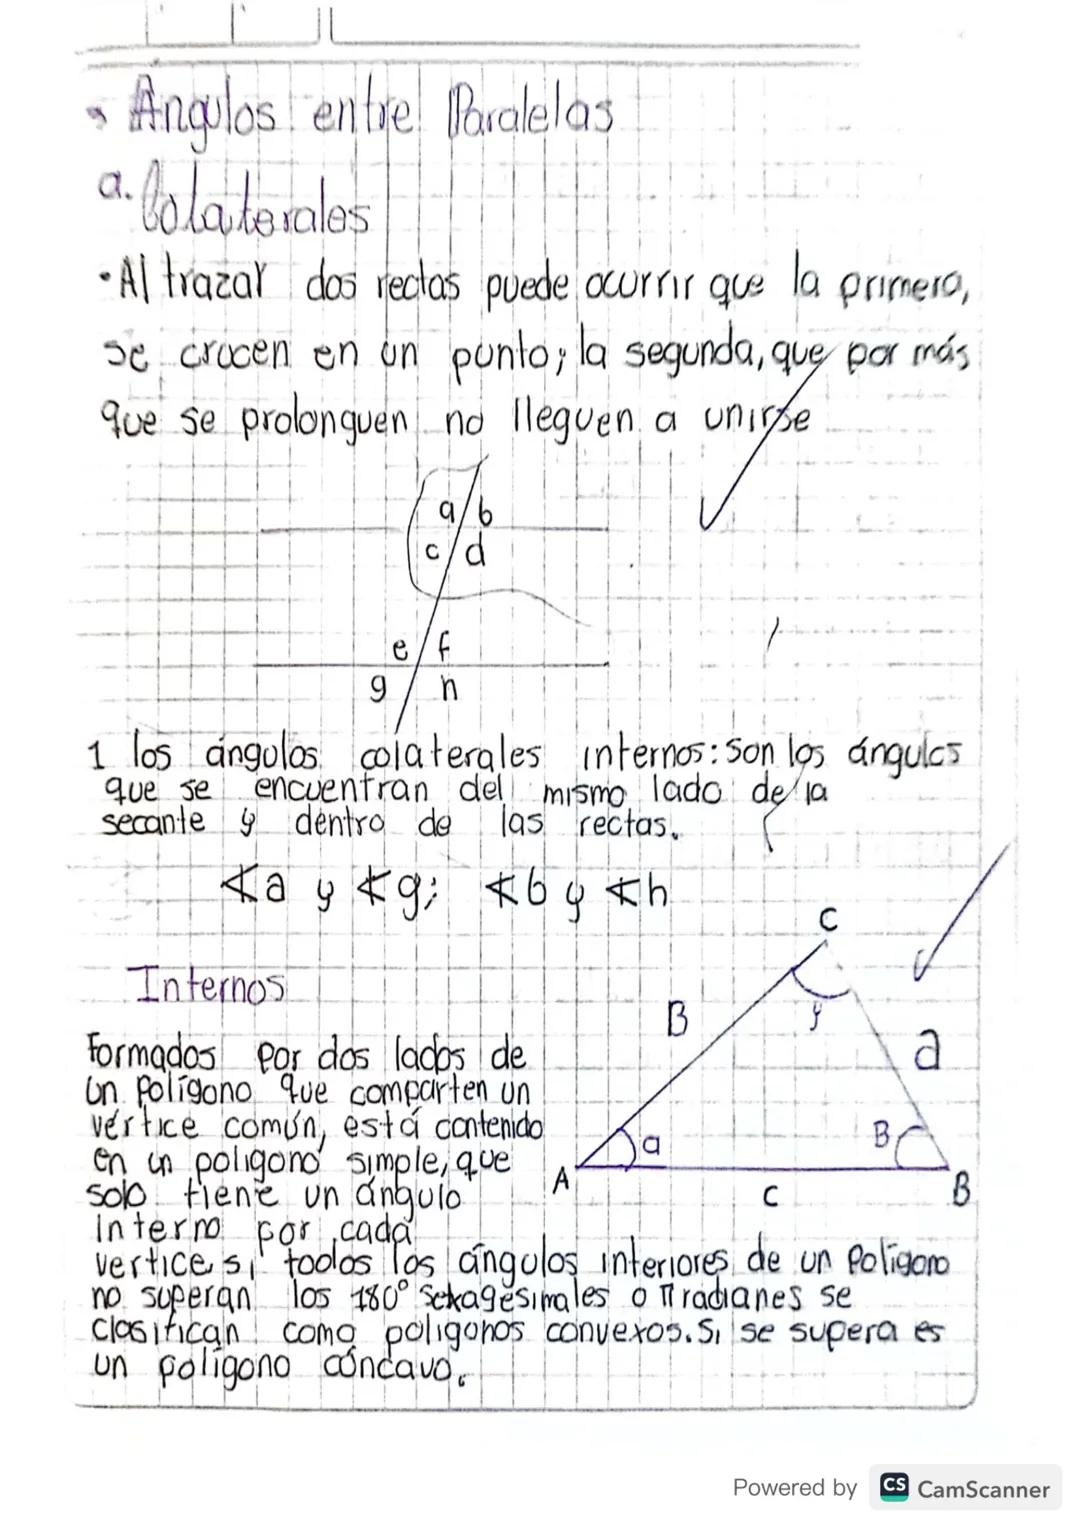 Angulos entre Paralelas
a. Colaterales
• Al trazar dos rectas puede ocurrir que la primera,
se crucen en un punto; la segunda, que por más
que se prolonguen no lleguen a unirse
a b
c d
e f
g h
1 los ángulos colaterales internos: son los ángulos
que se encuentran del mismo lado de la
secante y dentro de las rectas.
∢a y ∢g; ∢b y ∢h
C
Internos
B
y
a
Formados por dos lados de
un polígono que comparten un
vértice común, está contenido
en un poligono simple, que
solo tiene un ángulo
interno por cada
a
B
A
C
B
vertice si todos los ángulos interiores de un Polígono
no superan los 180° sexagesimales o π radianes se
clasifican como poligonos convexos. Si se supera es
un polígono cóncavo.
Powered by CS CamScanner